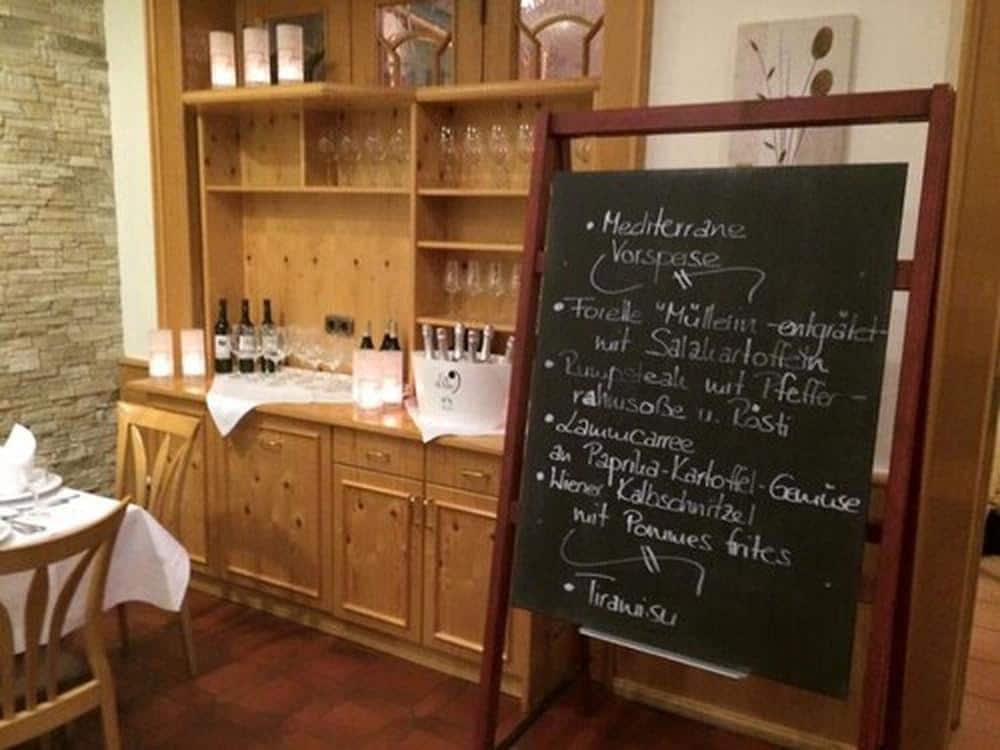 • Mediterrane
Vorspeise
• Forelle "Müllerin -entgrätet-
mit Salzkartoffeln
• Rumpsteak mit Pfeffer-
rahmsoße u. Rösti
• Lammcarree
an Paprika-Kartoffel-Gemüse
• Wiener Kalbschnitzel
mit Pommes frites
• Tiramisu